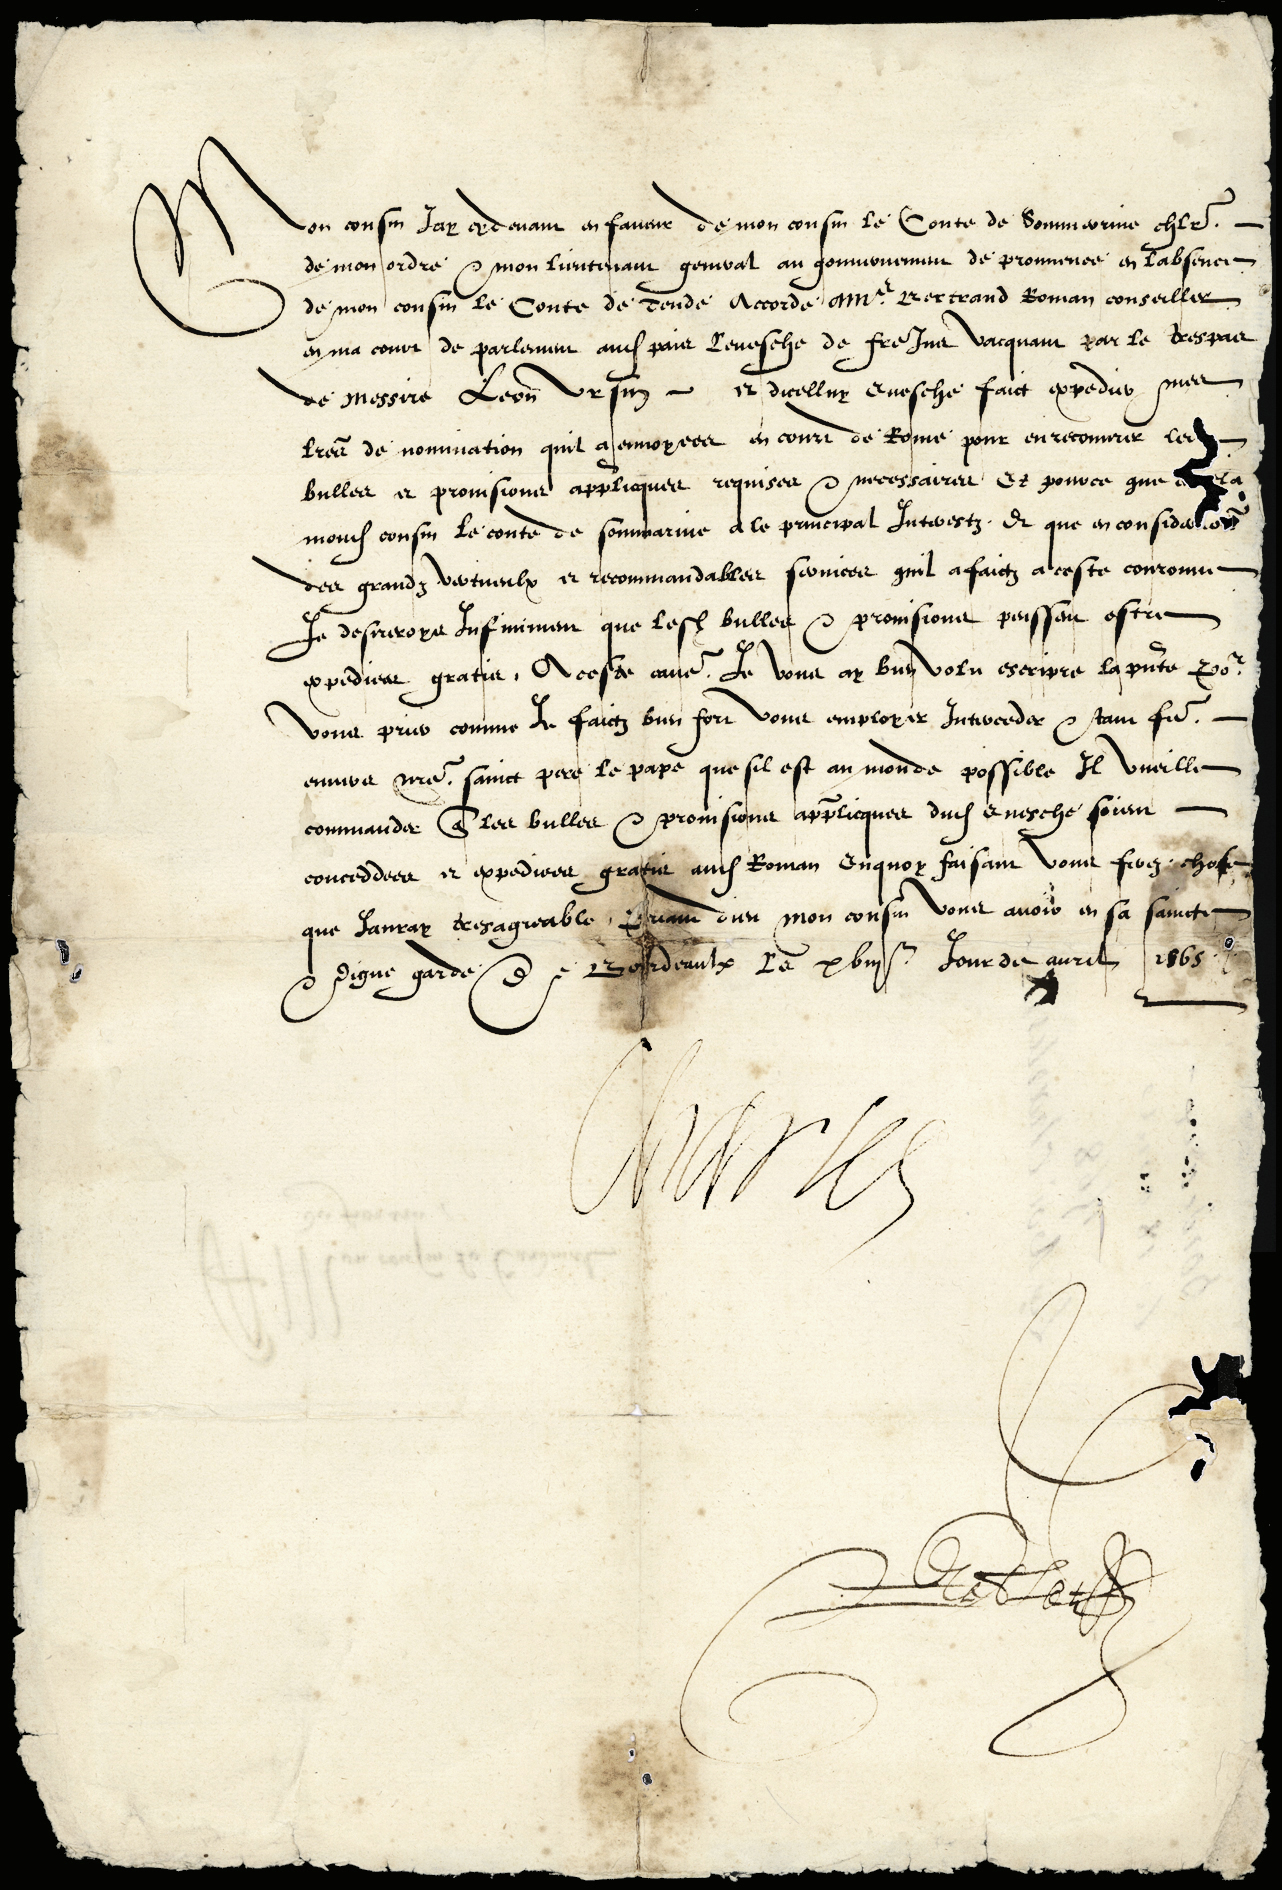 Mon cousin Jay cydevant en faveur de mon cousin le Conte de Sommerive chlr.
de mon ordre & mon lieutenant general au gouvernement de prouvence en labsence
de mon cousin le Conte de Tende Accordé a Me Bertrand Roman conseiller
en ma court de parlement aud pais Levesche de Frejus vacquant par le trespas
de messire Leon Ursin et dicelluy Evesche faict expedier mes
lres de nomination quil a envoyees en court de Rome pour en recouvrer les
bulles et provisions appliques requises & necessaires Et pource que
mond cousin le conte de sommarive a le principal Interestz. Et que en consideraon
des grandz vertueulx et recommandables services quil a faictz a ceste couronne
Je desireroys Infiniment que lesd bulles & provisions peussent estre
expediees gratis, A ceste cause. Je vous ay bien volu escripre la pnte Por
vous prier comme Je faictz bien fort vous employer Interceder & tant fe.
envers nre. sainct pere le pape que sil est au monde possible Il vueille
commander q les bulles & provisions appliques dud Evesche soient
conceddees et expediees gratis aud Roman Enquoy faisant vous ferez chose
que Jauray tresagreable, Priant dieu mon cousin vous avoir en sa saincte
& digne garde De Bordeaulx Le xviije Jour de avril 1565
Charles